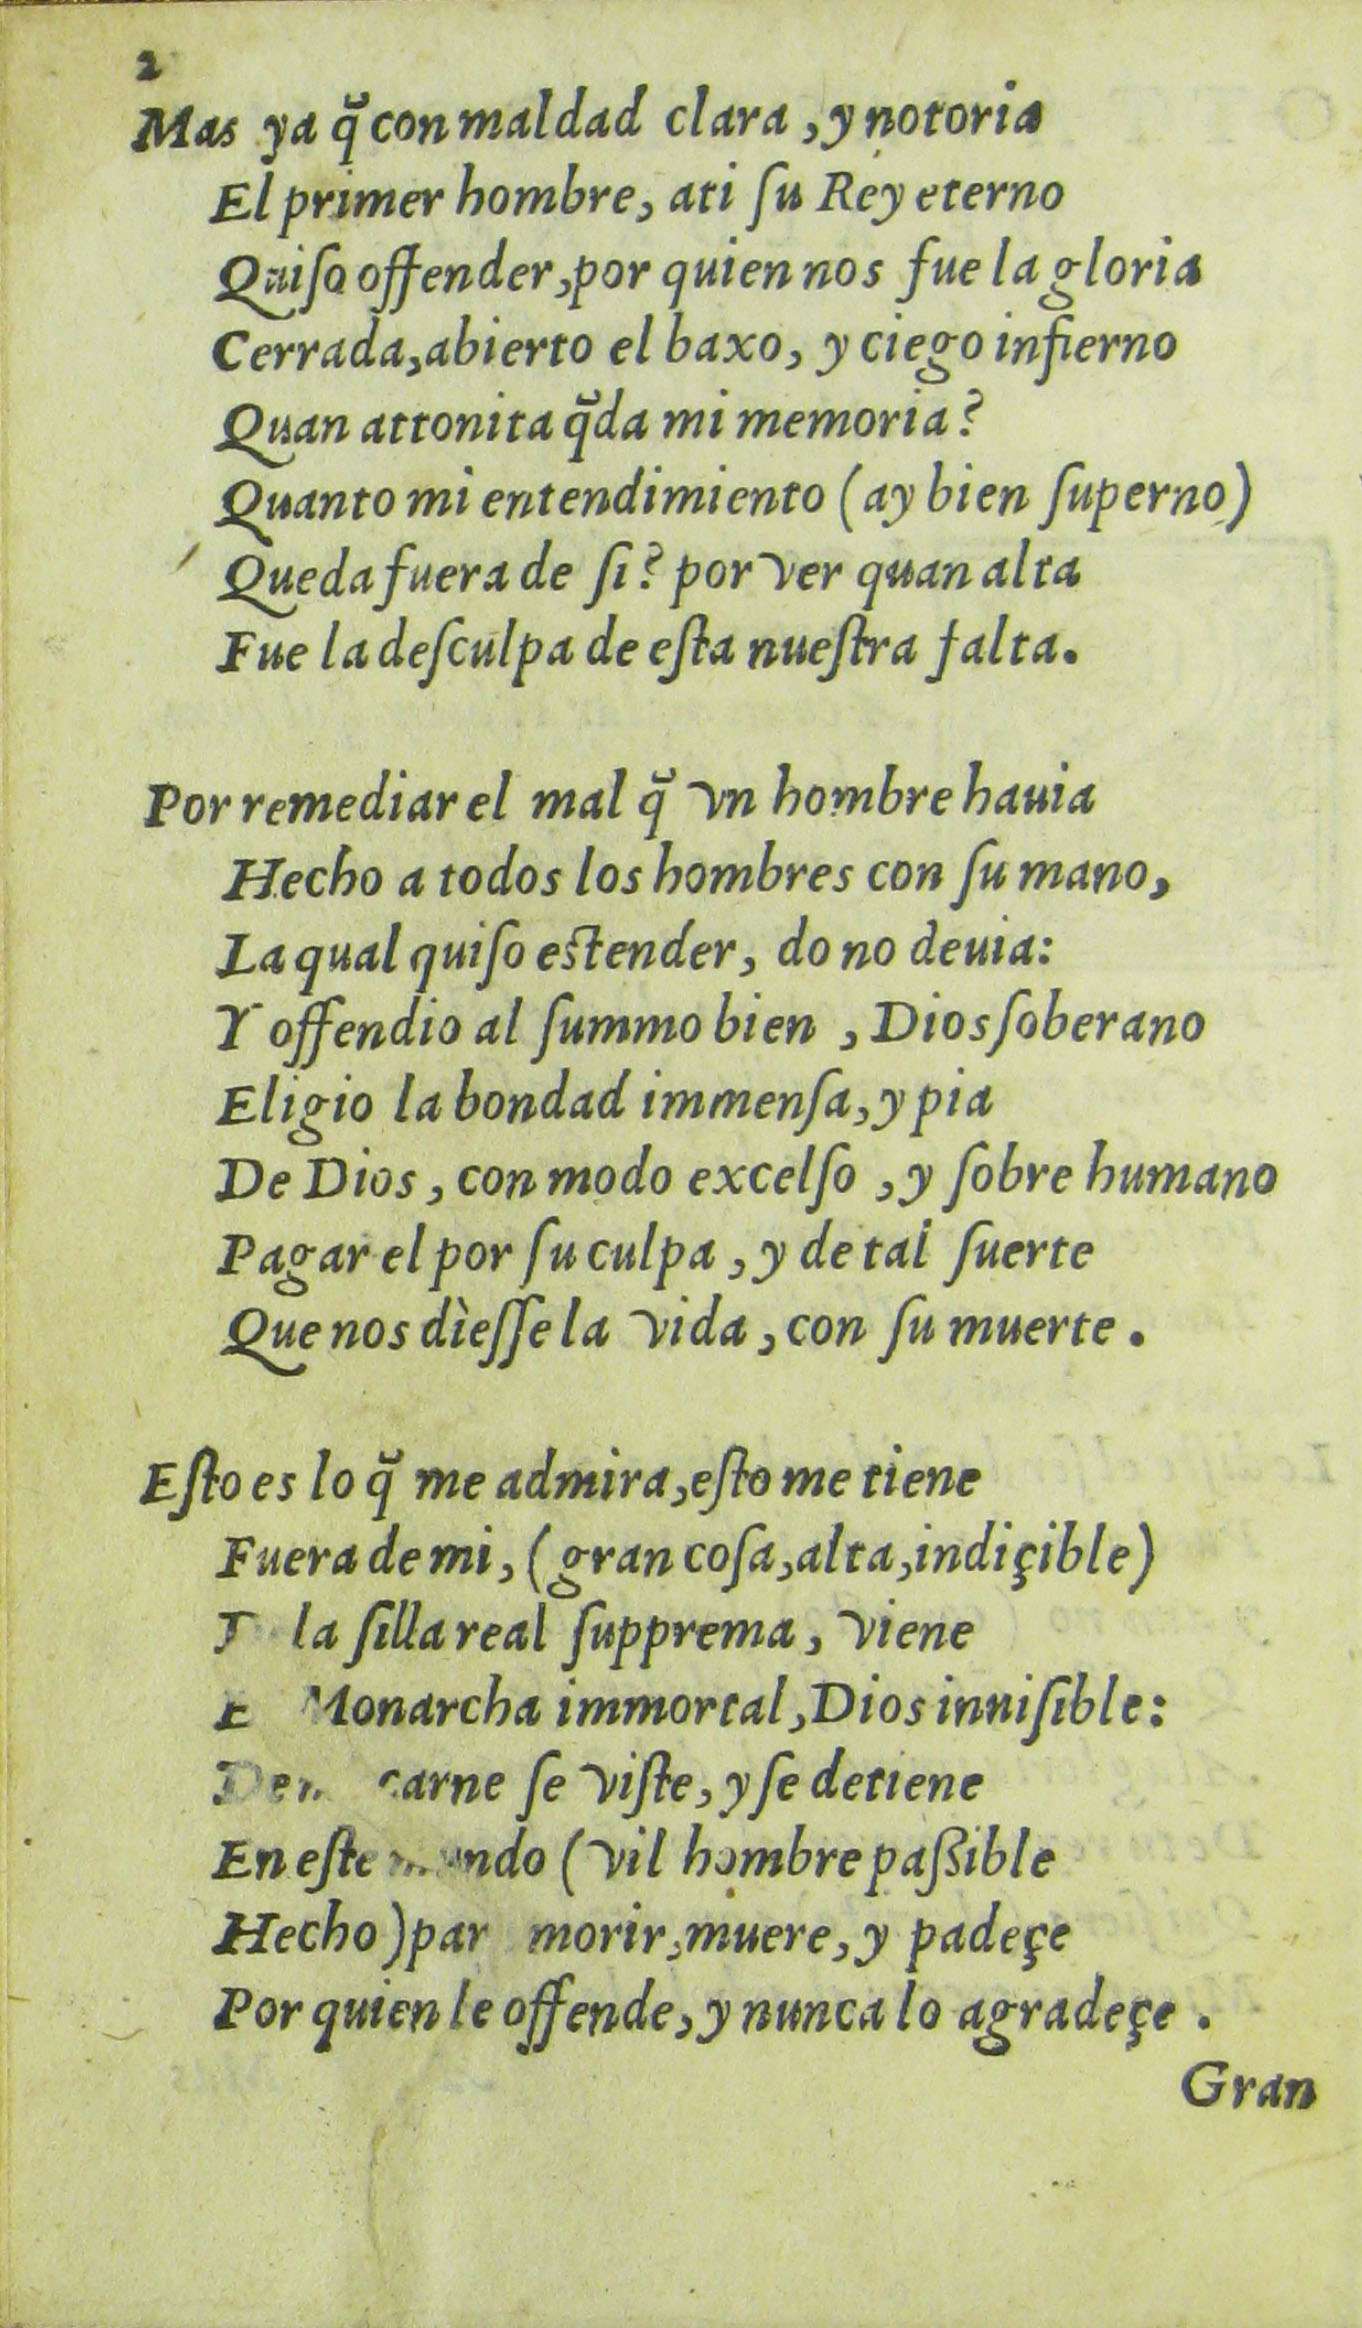 2
Mas ya q̃ con maldad clara, y notoria
El primer hombre, ati ſu Rey eterno
Quiſo offender, por quien nos fue la gloria
Cerrada, abierto el baxo, y ciego infierno
Quan attonita q̃da mi memoria?
Quanto mi entendimiento (ay bien ſuperno)
Queda fuera de ſi? por ver quan alta
Fue la deſculpa de eſta nueſtra falta.
Por remediar el mal q̃ vn hombre hauia
Hecho a todos los hombres con ſu mano,
La qual quiſo eſtender, do no deuia:
Y offendio al ſummo bien, Dios ſoberano
Eligio la bondad immenſa, y pia
De Dios, con modo excelſo, y ſobre humano
Pagar el por ſu culpa, y de tal ſuerte
Que nos dièſſe la vida, con ſu muerte.
Eſto es lo q̃ me admira, eſto me tiene
Fuera de mi, (gran coſa, alta, indiçible)
la ſilla real ſupprema, viene
Monarcha immortal, Dios inuiſible:
carne ſe viſte, y ſe detiene
En eſte mundo (vil hombre paßible
Hecho) par morir, muere, y padeçe
Por quien le offende, y nunca lo agradeçe.
Gran